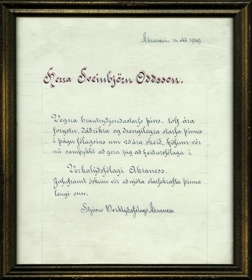 Akranesi
Herra Sveinbjörn Oddsson.
Vegna brautryðjendastarfs þíns, tólf ára
forystu, dáðríks og drengilegra starfa þinna
í þágu félagsins um 25 ára skeið, höfum vér
nú samþykkt að gera þig að heiðursfélaga í
Verkalýðsfélagi Akraness.
Jafnframt óskum vér að njóta starfskrafta þinna
lengi enn.
Stjórn Verklýðsfélags Akraness